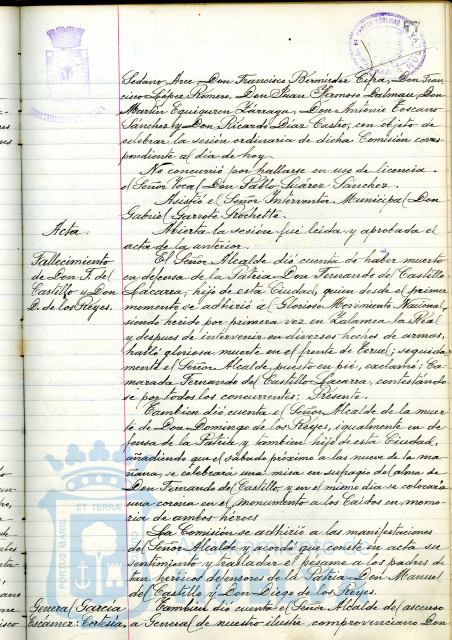 Sedano Arce, Don Francisco Bermúdez Cifra, Don Fran
cisco López Romero, Don Juan Formoso Dalmau, Don
Martín Equiguren Zárraga, Don Antonio Toscano
Sánchez y Don Ricardo Díaz Castro, con objeto de
celebrar la sesión ordinaria de dicha Comisión corres
pondiente al día de hoy.
No concurrió por hallarse en uso de licencia
el Señor Vocal Don Pablo Suárez Sánchez.
Asistió el Señor Interventor Municipal Don
Gabriel Garrote
Acta.
Abierta la sesión fué leida y aprobada el
acta de la anterior.
Fallecimiento
de Don F. del
Castillo y Don
D. de los Reyes.
El Señor Alcalde dió cuenta de haber muerto
en defensa de la Patria Don Fernando del Castillo
Lacarra, hijo de esta Ciudad, quien desde el primer
momento se adhirió al Glorioso Movimiento Nacional
siendo herido por primera vez en Zalamea la Real
y despues de intervenir en diversos hechos de armas,
halló gloriosa muerte en el frente de Teruel; seguida
mente el Señor Alcalde, puesto en pié, exclamó: Ca
marada Fernando del Castillo Lacarra, contestándo
se por todos los concurrentes: Presente.
Tambien dió cuenta el Señor Alcalde de la muer
te de Don Domingo de los Reyes, igualmente en de
fensa de la Patria y tambien hijo de esta Ciudad,
añadiendo que el sábado próximo a las nueve de la ma
ñana, se celebrará una misa en sufragio del alma de
Don Fernando del Castillo, y en el mismo dia se colocará
una corona en el monumento a los Caidos en memo
ria de ambos héroes
La Comisión se adhirió a las manifestaciones
del Señor Alcalde y acordó que conste en acta su
sentimiento y trasladar el pésame a los padres de
tan heróicos defensores de la Patria Don Manuel
del Castillo y Don Diego de los Reyes.
General García
Escámez: Cortesía,
Tambien dió cuenta el Señor Alcalde del ascenso
a General de nuestro ilustre comprovinciano Don
PORTUS MARIS ET TERRAE